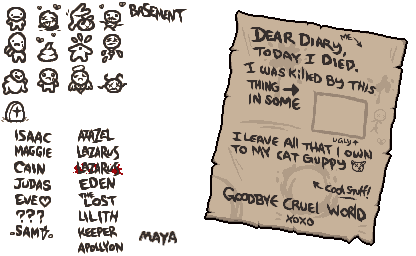 BASEMENT
ISAAC
MAGGIE
CAIN
JUDAS
EVE♡
???
-SAM-
AZAZEL
LAZARUS
LAZARUS
EDEN
THE
LOST
LILITH
KEEPER
APOLLYON
MAYA
DEAR DIARY,
ME
TODAY I DIED.
I WAS KILLED BY THIS
THING →
IN SOME
UGLY↑
I LEAVE ALL THAT I OWN
TO MY CAT GUPPY
↖ COOL STUFF!
GOODBYE CRUEL WORLD
XOXO